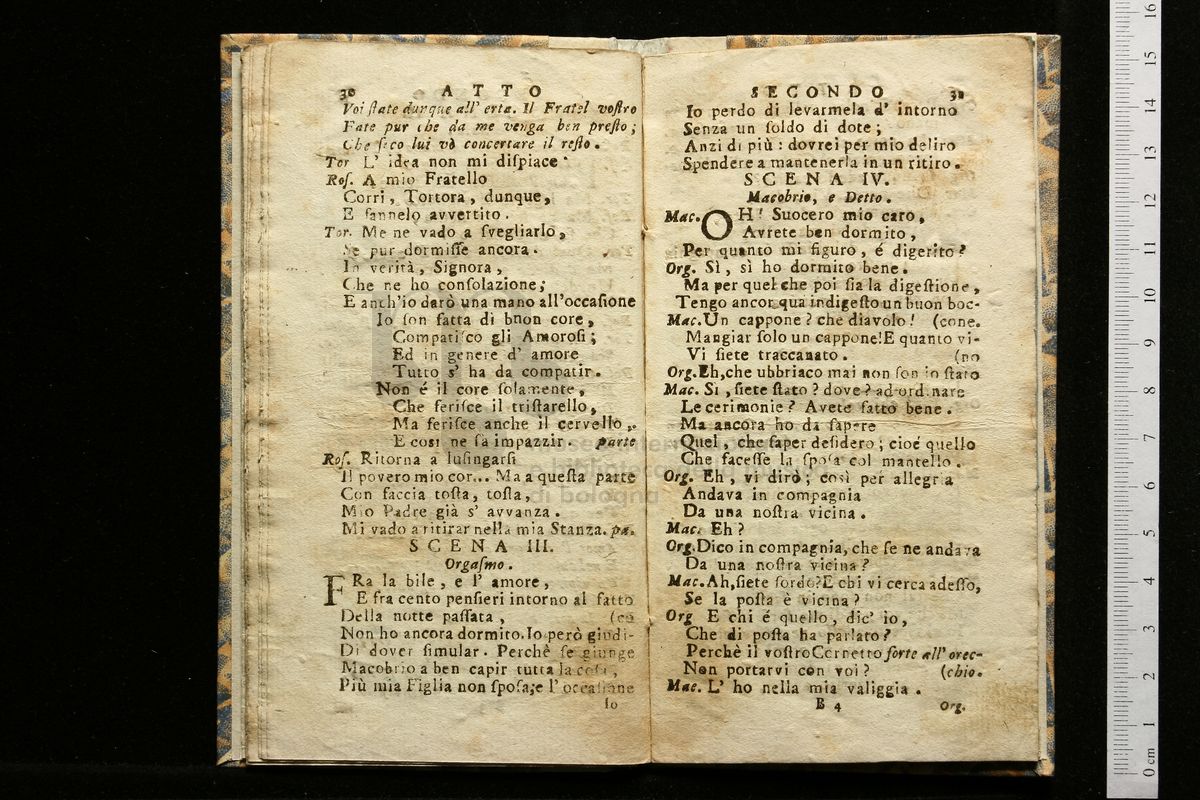 30 ATTO
Voi ſtate dunque all' erta. Il Fratel voſtro
Fate pur che da me venga ben preſto;
Che ſeco lui vò concertare il reſto.
Tor L' idea non mi diſpiace
Roſ. A mio Fratello
Corri, Tortora, dunque,
E fannelo avvertito.
Tor. Me ne vado a ſvegliarlo,
Se pur dormiſſe ancora.
In verità, Signora,
Che ne ho conſolazione;
E anch'io darò una mano all'occaſione
Io ſon fatta di buon core,
Compatiſco gli Amoroſi;
Ed in genere d' amore
Tutto s' ha da compatir.
Non é il core ſolamente,
Che feriſce il triſtarello,
Ma feriſce anche il cervello,
E cosi ne fà impazzir. parte
Roſ. Ritorna a luſingarſi
Il povero mio cor... Ma a queſta parte
Con faccia toſta, toſta,
Mio Padre già s' avvanza.
Mi vado a ritirar nella mia Stanza. pa.
SCENA III.
Orgaſmo.
FRa la bile, e l' amore,
E fra cento penſieri intorno al fatto
Della notte paſſata, (co
Non ho ancora dormito. Io però giudi-
Di dover ſimular. Perchè ſe giunge
Macobrio a ben capir tutta la coſa,
Più mia Figlia non ſpoſa; e l' occaſione
Io
SECONDO 31
Io perdo di levarmela d' intorno
Senza un ſoldo di dote;
Anzi di più: dovrei per mio deliro
Spendere a mantenerla in un ritiro.
SCENA IV.
Macobrio, e Detto.
Mac. OH! Suocero mio caro,
Avrete ben dormito,
Per quanto mi figuro, é digerito?
Org. Sì, sì ho dormito bene.
Ma per quel che poi ſia la digeſtione,
Tengo ancor qua indigeſto un buon boc-
Mac. Un cappone? che diavolo! (cone.
Mangiar ſolo un cappone! E quanto vi-
Vi ſiete traccanato. (no
Org. Eh, che ubbriaco mai non ſon io ſtato
Mac. Si, ſiete ſtato? dove? ad ordinare
Le cerimonie? Avete fatto bene.
Ma ancora ho da ſapere
Quel, che ſaper deſidero; cioé quello
Che faceſſe la ſpoſa col mantello.
Org. Eh, vi dirò; così per allegria
Andava in compagnia
Da una noſtra vicina.
Mac. Eh?
Org. Dico in compagnia, che ſe ne andava
Da una noſtra vicina?
Mac. Ah, ſiete ſordo? E chi vi cerca adeſſo,
Se la poſta è vicina?
Org E chi é quello, dic' io,
Che di poſta ha parlato?
Perchè il voſtro Cornetto forte all' orec-
Non portarvi con voi? (chio.
Mac. L' ho nella mia valiggia.
B 4 Org.